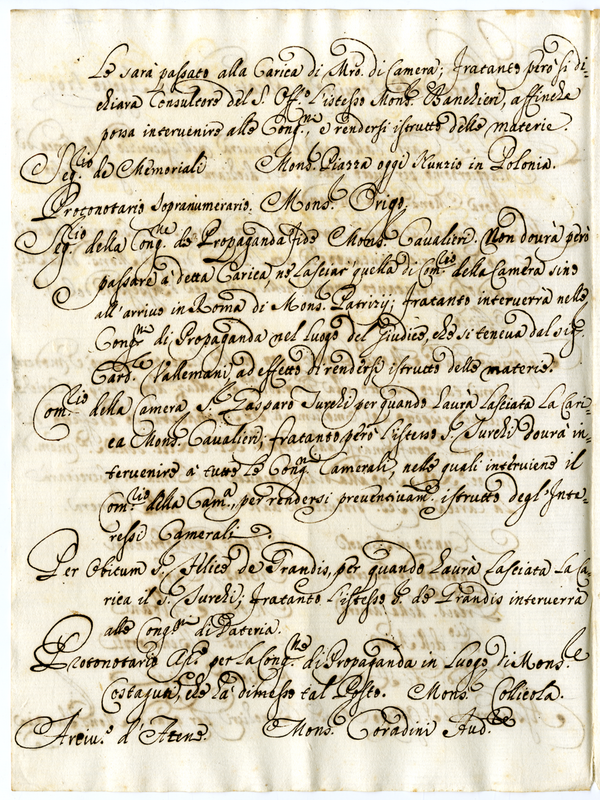 Le sarà passato alla Carica di Mro. di Camera; fratanto però si di-
chiara Consultore del S. Offo. l'istesso Monsr. Banchieri, affinche
possa intervenire alle Congne., e rendersi istrutto delle materie.
Segrio. de Memoriali Monsr. Piazza oggi Nunzio in Polonia.
Protonotario sopranumerario. Monsr. Origo.
Segrio. della Congne. de Propaganda fide Monsr. Cavalieri. Non dovrà però
passare a' detta Carica, nè lasciar quella di Comrio. della Camera sino
all'arrivo in Roma di Monsr. Patrizij; fratanto interverrà nelle
Congni. di Propaganda nel luogo del Giudice, che si teneva dal sigr.
Cardle. Vallemani, ad effetto di rendersi istrutto delle materie.
Comrio. della Camera Sr. Gasparo Turchi per quando l'aurà lasciata la Cari-
ca Monsr. Cavalieri; fratanto però l'istesso Sr. Turchi dourà in-
tervenire a' tutte le Congni. Camerali, nelle quali interviene il
Comrio. della Cama., per rendersi preventivamte. istrutto degl'Inte-
ressi Camerali.
Per Obitum Sr. Felice de Grandis, per quando l'aurà lasciata la Ca-
rica il Sr. Turchi; fratanto l'istesso Sr. de Grandis interverrà
alle Congni. di Dateria.
Protonotario Aplo. per la Congne. di Propaganda in luogo di Monsr.
Costaguti, che hà dimesso tal Posto. Monsr. Collicola.
Monsr. Coradini Audre.